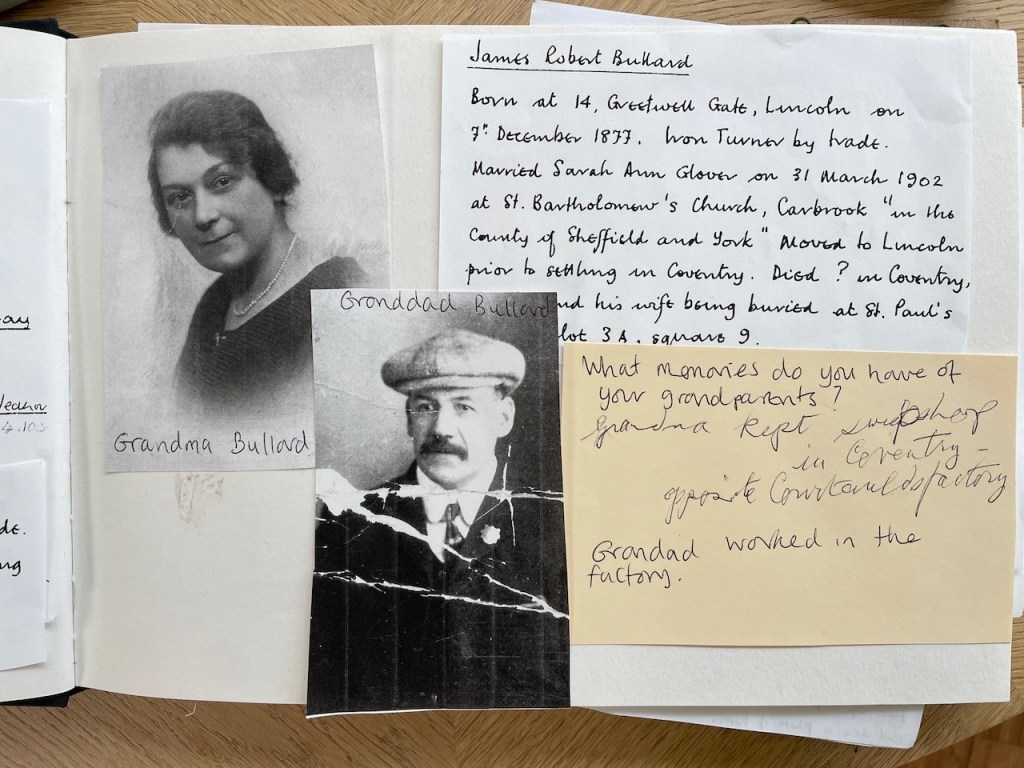 James Robert Bullard
Born at 14, Greetwell Gate, Lincoln on
7th December 1877. Iron Turner by trade.
Married Sarah Ann Glover on 31 March 1902
at St. Bartholomew's Church, Carbrook "in the
County of Sheffield and York" Moved to Lincoln
prior to settling in Coventry. Died ? in Coventry,
nd his wife being buried at St. Paul's
lot 3A, square 9.
Grandma Bullard
Granddad Bullard
What memories do you have of
your grandparents?
Grandma kept sweetshop
in Coventry -
opposite Courtaulds factory
Grandad worked in the
factory.
ay
4.10.5
de.
ng